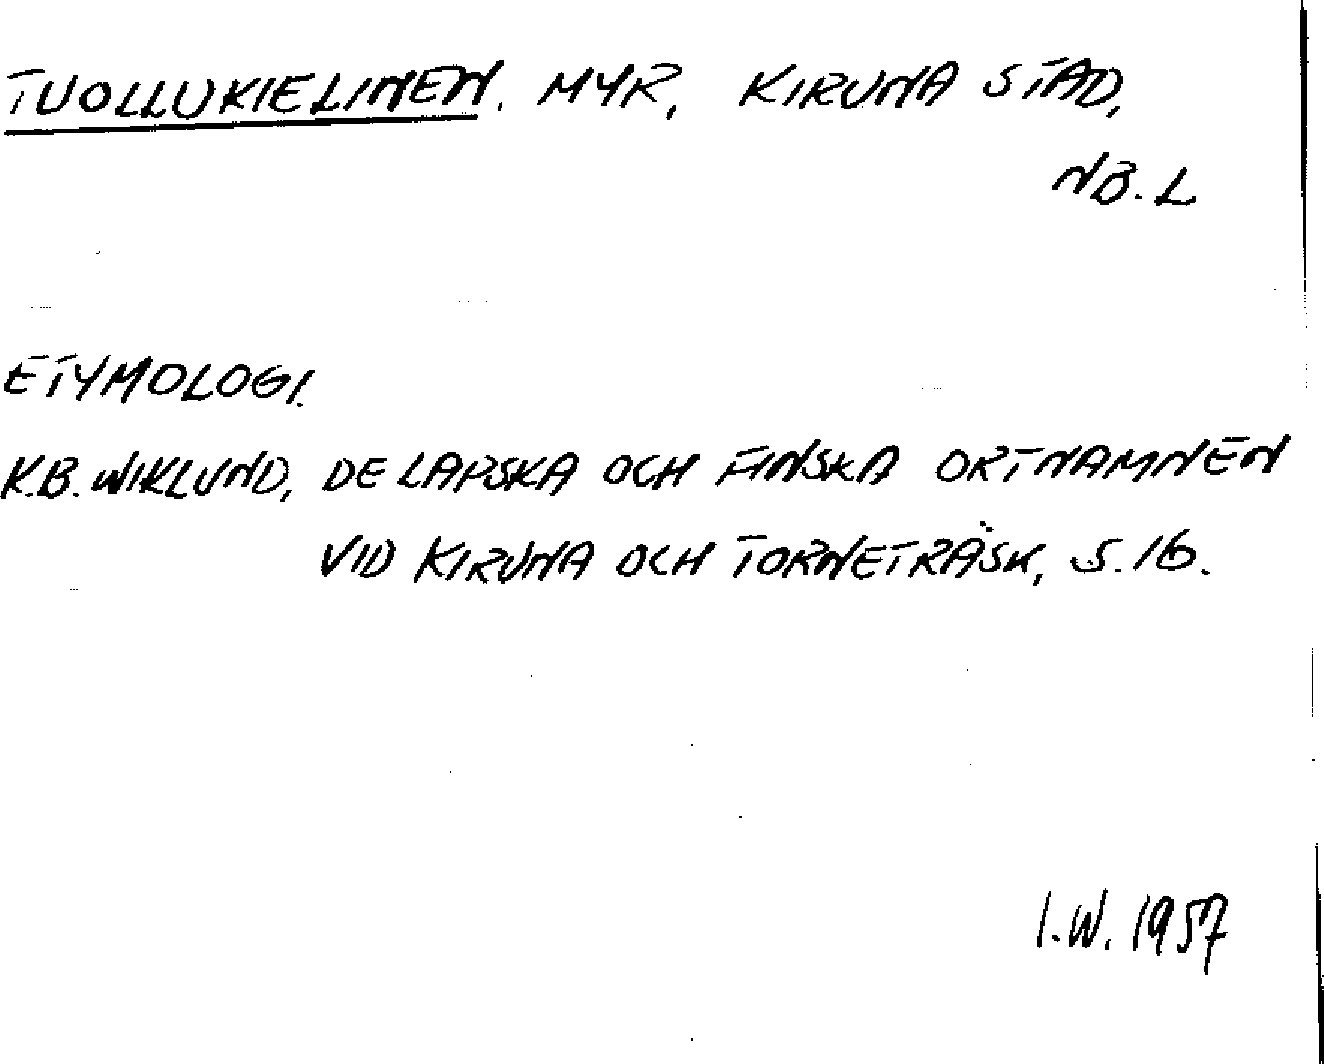 TUOLLUKIELINEN. MYR, KIRUNA STAD,
NB. L
ETYMOLOGI.
K.B. WIKLUND, DE LAPSKA OCH FINSKA ORTNAMNEN
VID KIRUNA OCH TORNETRÄSK, S. 16.
I.W. 1957